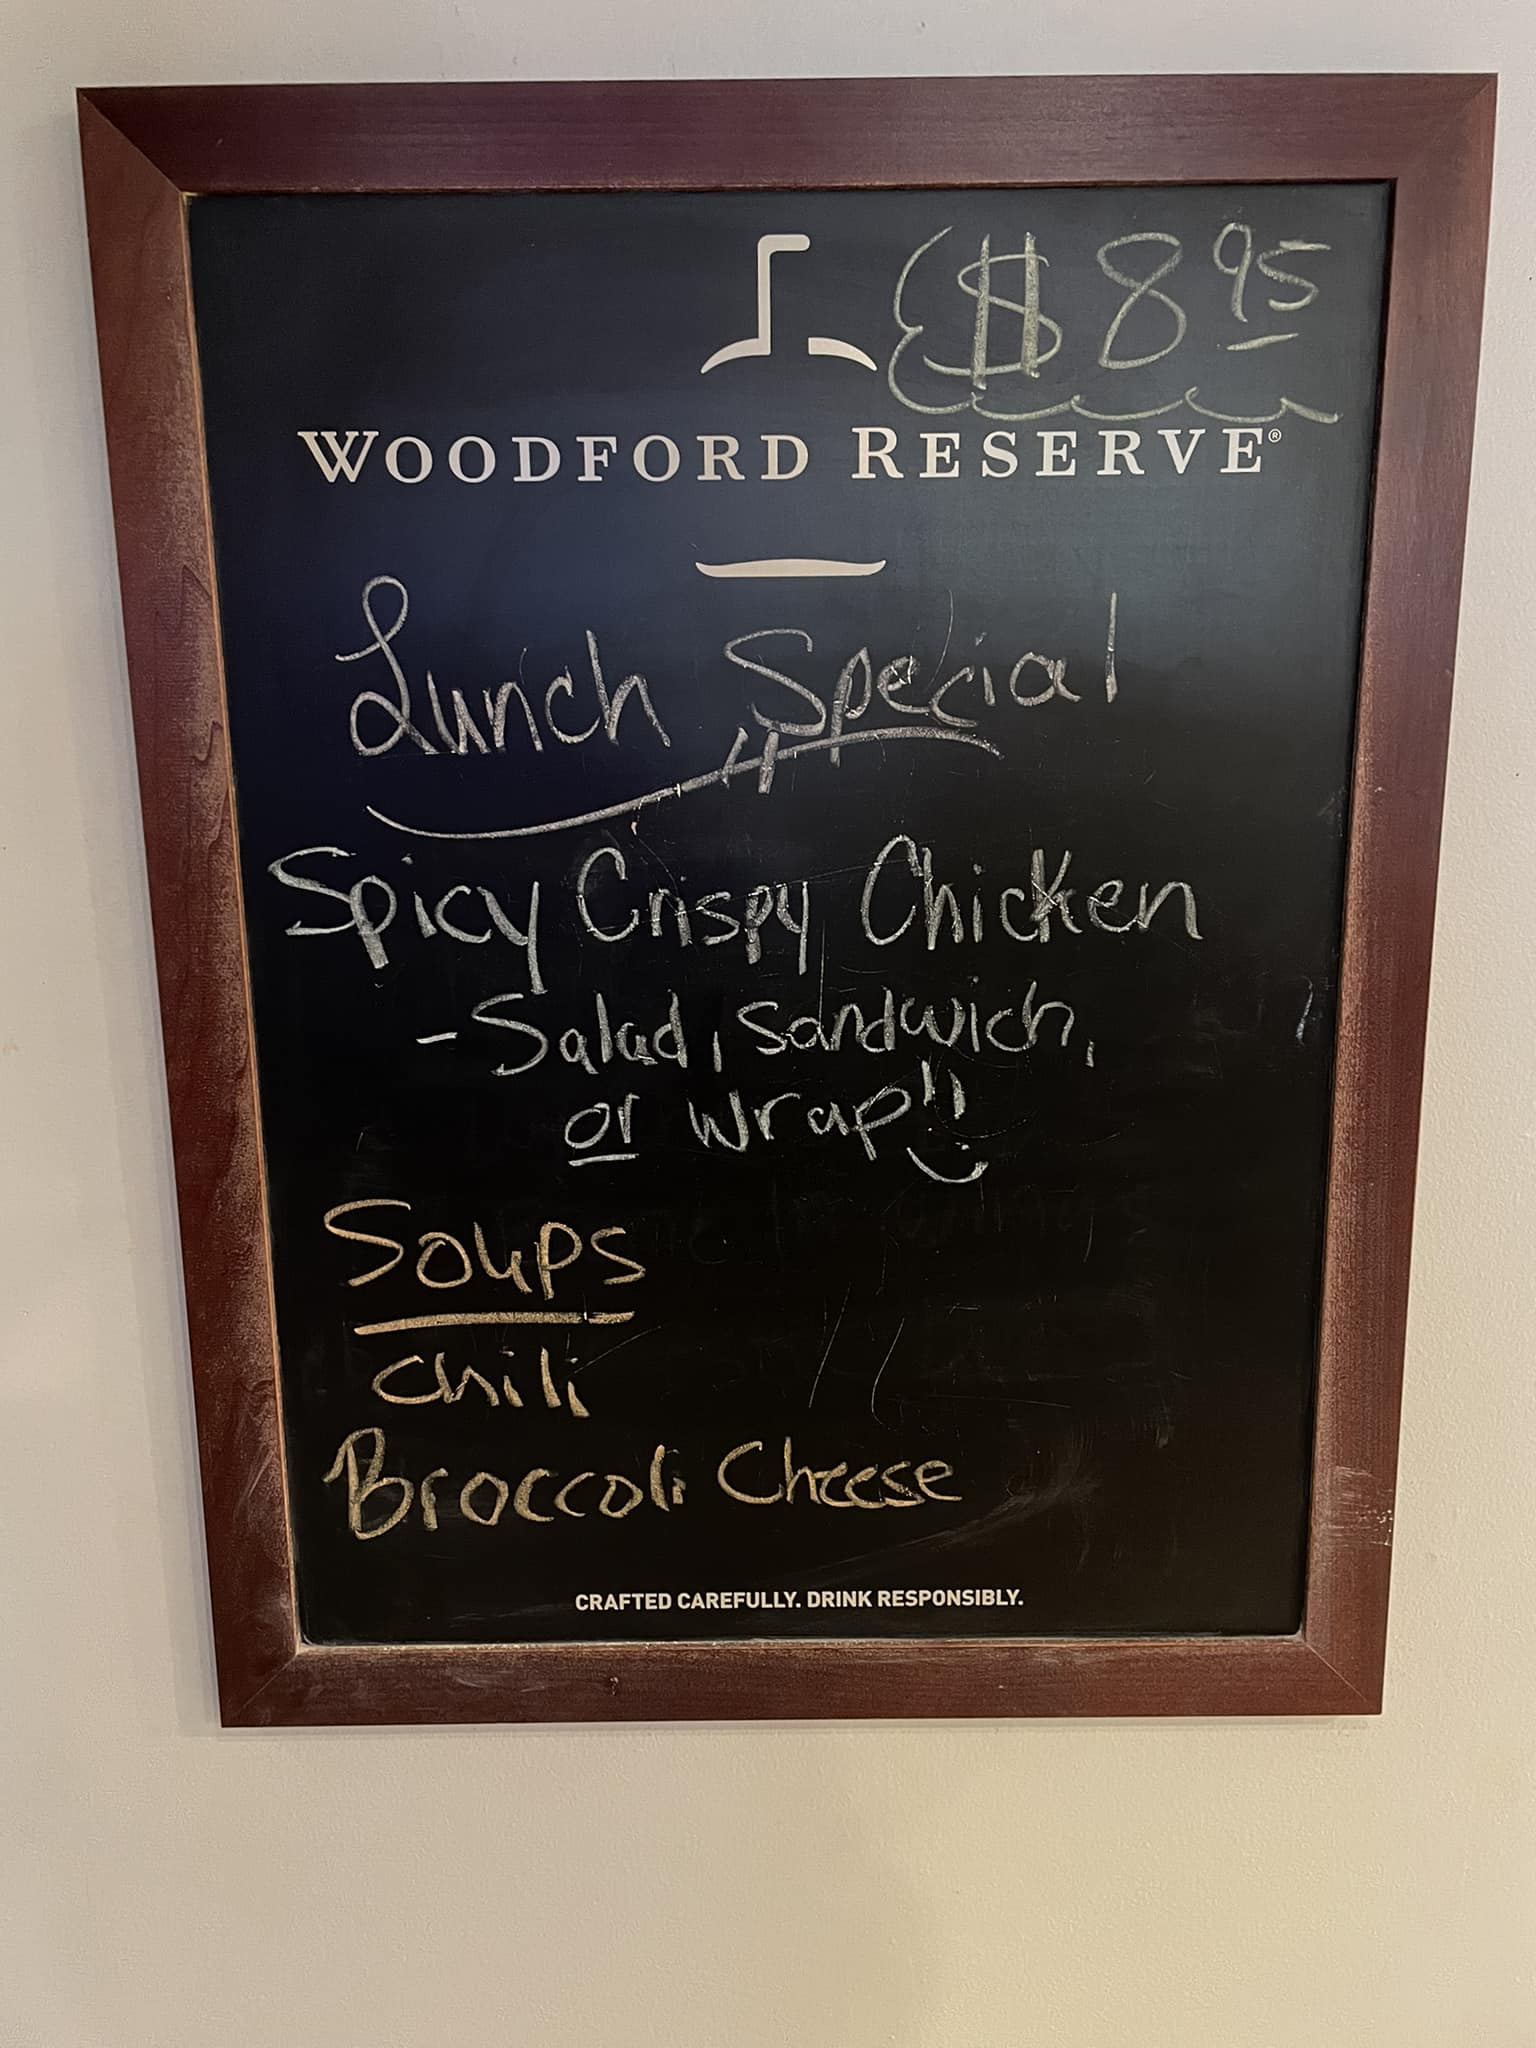 $8.95
WOODFORD RESERVE®
Lunch Special
Spicy Crispy Chicken
- Salad, Sandwich,
or wrap!!
Soups
Chili
Broccoli Cheese
CRAFTED CAREFULLY. DRINK RESPONSIBLY.